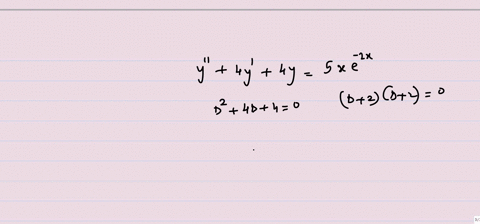 y'' + 4y' + 4y = 5xe^{-2x}
D^2 + 4D + 4 = 0 (D+2)(D+2) = 0